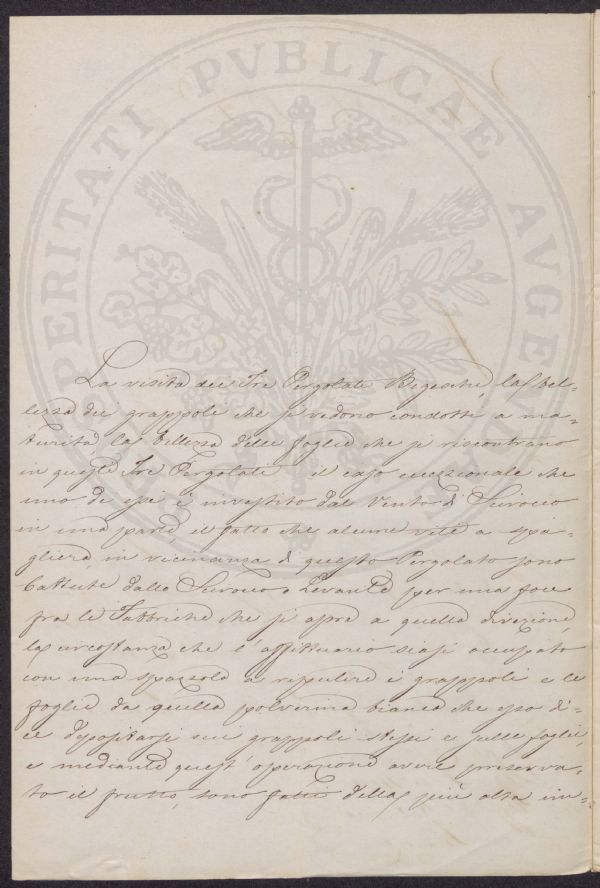 PROSPERITATI PVBLICAE AVGENDAE
La visita dei Tre Pergolati Begeschi, la bel-
lezza dei grappoli che si vedono condotti a ma-
turità, la bellezza delle foglie che si riscontrano
in questi Tre Pergolati il caso eccezionale che
uno di essi è investito dal Vento di Scirocco
in una parte, il fatto che alcune viti a spa-
gliera, in vicinanza di questo Pergolato sono
battute dallo Scirocco e Levante per una foce
fra le Fabbriche che si apre a quella direzione,
la circostanza che l'affittuario siasi occupato
con una spazzola a ripulire i grappoli e le
foglie da quella polverina bianca che esso di-
ce depositarsi sui grappoli stessi e sulle foglie,
e mediante quest'operazione avere preserva-
to il frutto, sono fatti della più alta im-